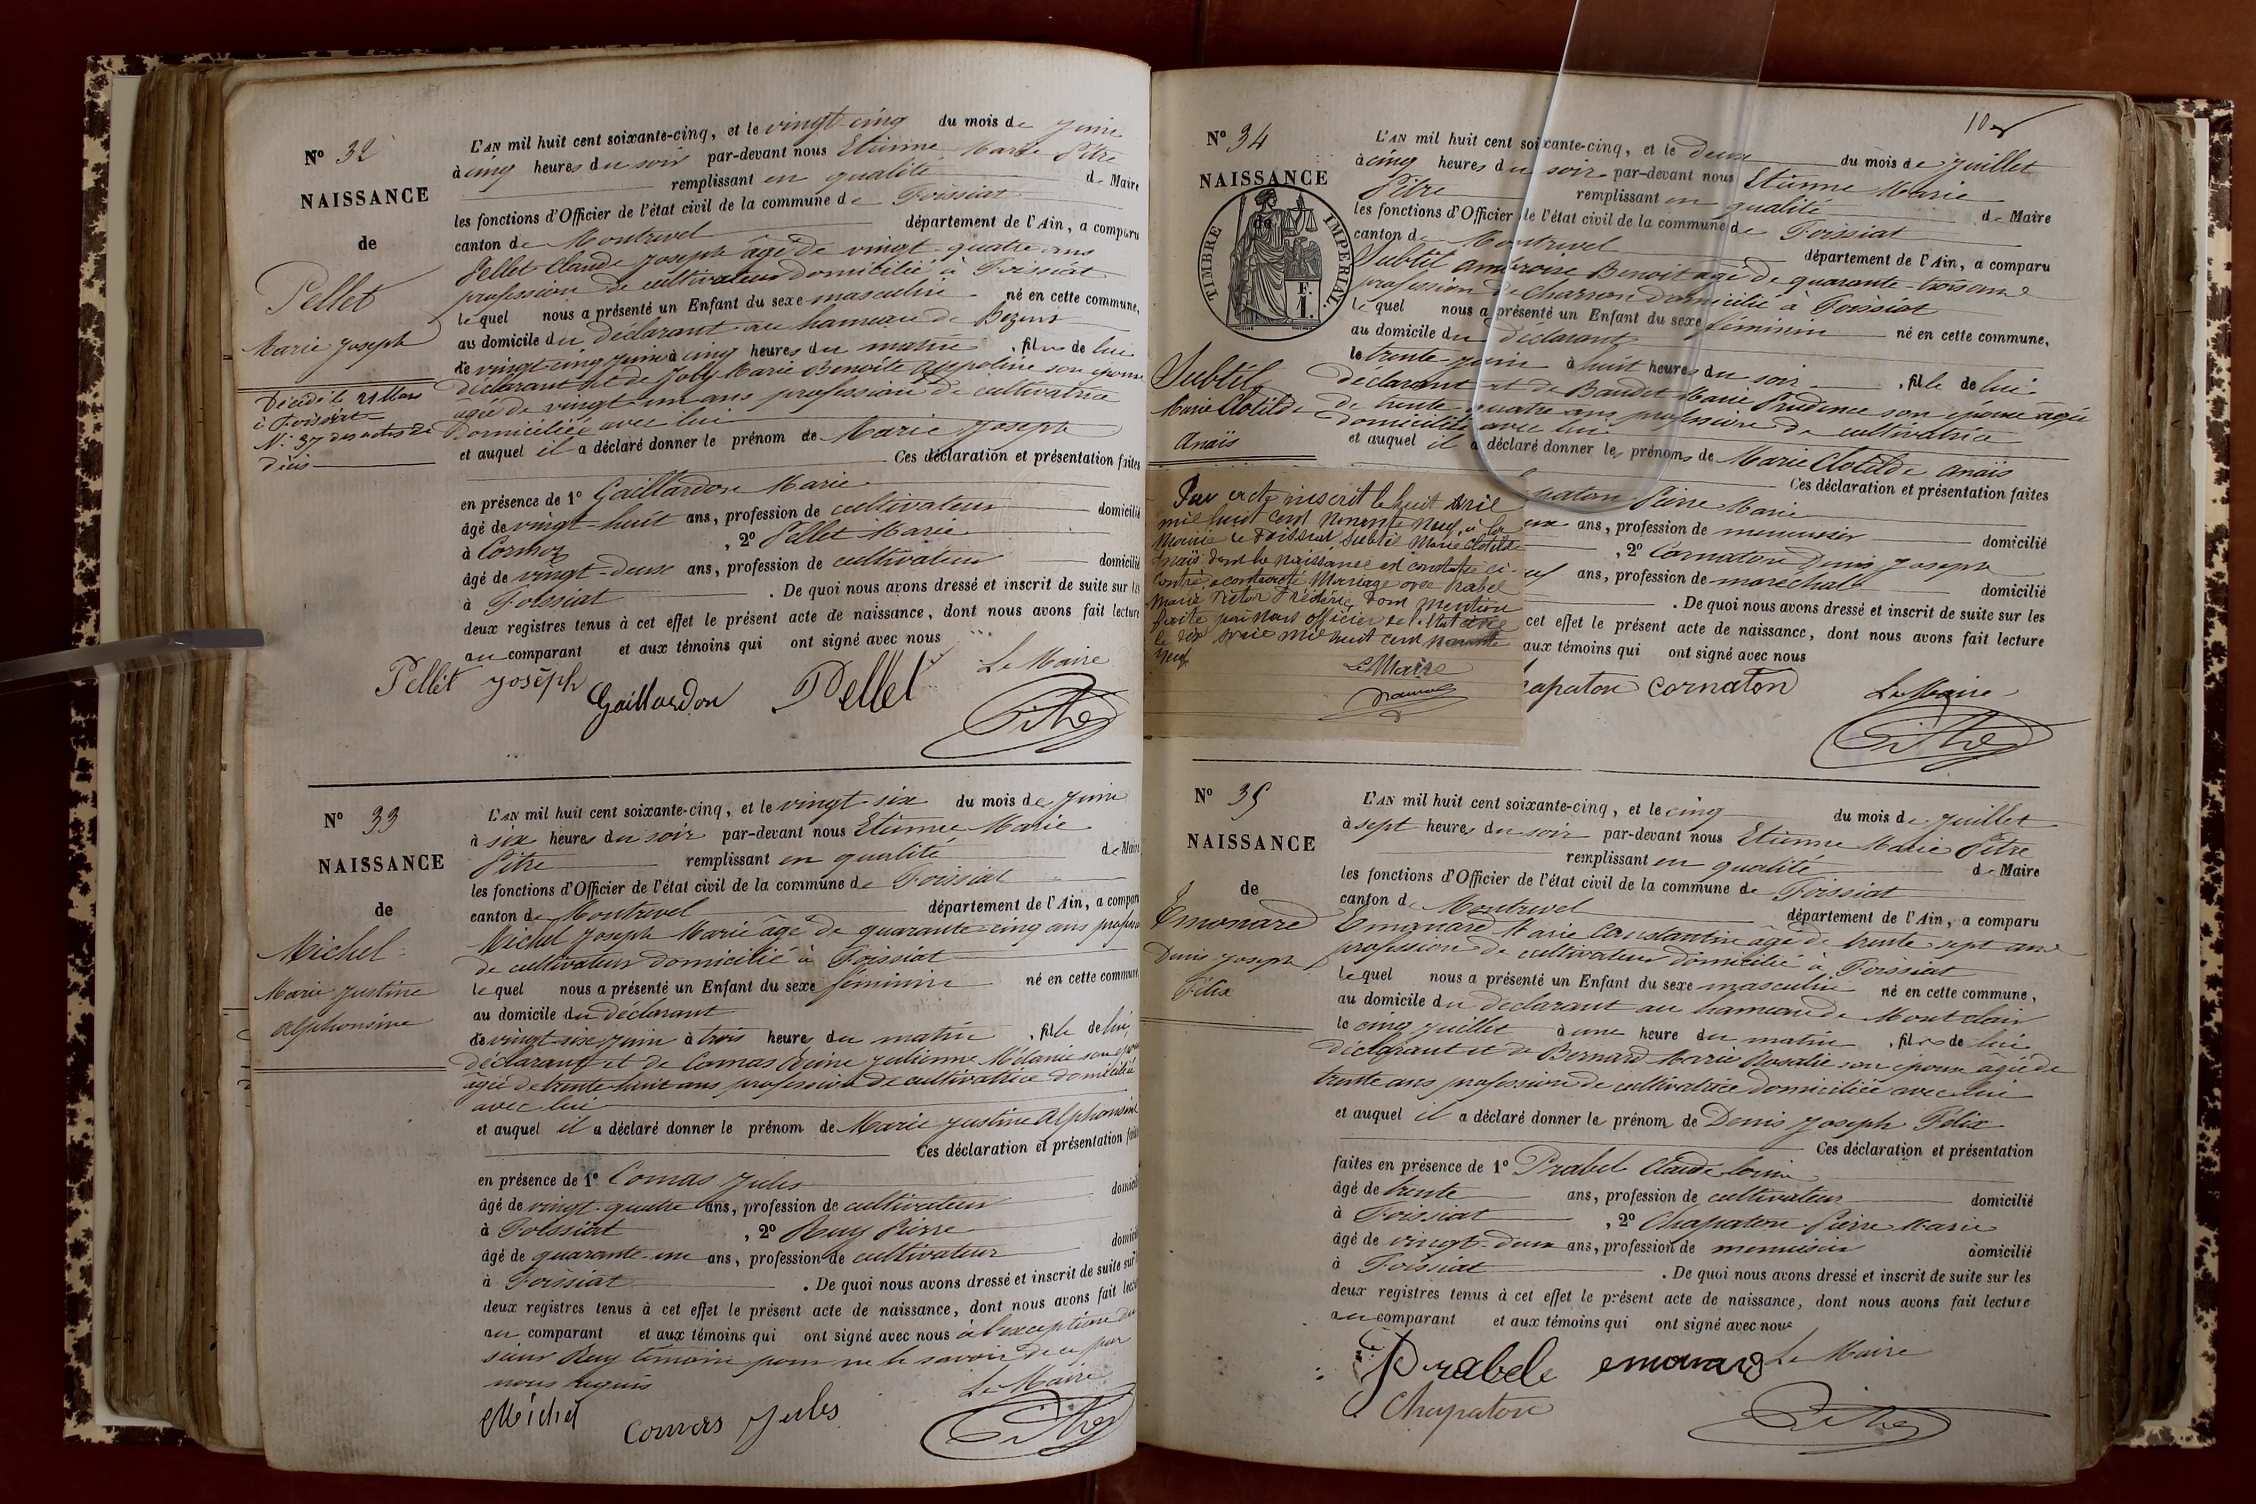 N° 32
NAISSANCE
de
Pellet
Marie Joseph
Décédé le 21 Mars
à Foissiat
N° 37 des actes de
décès
L'AN mil huit cent soixante-cinq, et le vingt-cinq du mois de Juin
à cinq heures du soir par-devant nous Etienne Marie Pitre
remplissant en qualité de Maire
les fonctions d'Officier de l'état civil de la commune de Foissiat
canton de Montrevel département de l'Ain, a comparu
Pellet Claude Joseph âgé de vingt-quatre ans
profession de cultivateur domicilié à Foissiat
lequel nous a présenté un Enfant du sexe masculin né en cette commune,
au domicile du déclarant au hameau de
le vingt-cinq Juin à cinq heures du matin, fils de lui
déclarant et de Joly Marie Benoîte Appoline son épouse
âgée de vingt-un ans profession de cultivatrice
domiciliée avec lui
et auquel il a déclaré donner le prénom de Marie Joseph
Ces déclaration et présentation faites
en présence de 1° Gaillardon Marie
âgé de vingt-huit ans, profession de cultivateur domicilié
à Cormoz, 2° Pellet Marie
âgé de vingt-deux ans, profession de cultivateur domicilié
à Foissiat. De quoi nous avons dressé et inscrit de suite sur les
deux registres tenus à cet effet le présent acte de naissance, dont nous avons fait lecture
au comparant et aux témoins qui ont signé avec nous
Pellet Joseph Gaillardon Pellet Le Maire
Pitre
N° 33
NAISSANCE
de
Michel
Marie Justine
Alphonsine
L'AN mil huit cent soixante-cinq, et le vingt-six du mois de Juin
à six heures du soir par-devant nous Etienne Marie
Pitre remplissant en qualité de Maire
les fonctions d'Officier de l'état civil de la commune de Foissiat
canton de Montrevel département de l'Ain, a comparu
Michel Joseph Marie âgé de quarante-cinq ans profession
de cultivateur domicilié à Foissiat
lequel nous a présenté un Enfant du sexe féminin né en cette commune,
au domicile du déclarant
le vingt-six Juin à trois heures du matin, fille de lui
déclarant et de Comas Julienne Mélanie son épouse
âgée de trente-huit ans profession de cultivatrice domiciliée
avec lui
et auquel il a déclaré donner le prénom de Marie Justine Alphonsine
Ces déclaration et présentation faites
en présence de 1° Comas Jules
âgé de vingt-quatre ans, profession de cultivateur domicilié
à Foissiat, 2° Ruy Pierre
âgé de quarante-un ans, profession de cultivateur domicilié
à Foissiat. De quoi nous avons dressé et inscrit de suite sur
deux registres tenus à cet effet le présent acte de naissance, dont nous avons fait lecture
au comparant et aux témoins qui ont signé avec nous à l'exception du
sieur Ruy témoin pour ne le savoir de ce par
nous requis
Le Maire
Michel Comas Jules Pitre
10
N° 34
NAISSANCE
de
TIMBRE IMPERIAL.
F.
1.
Subtil
Marie Clotilde
Anaïs
L'AN mil huit cent soixante-cinq, et le deux du mois de Juillet
à cinq heures du soir par-devant nous Etienne Marie
Pitre remplissant en qualité de Maire
les fonctions d'Officier de l'état civil de la commune de Foissiat
canton de Montrevel département de l'Ain, a comparu
Subtil Ambroise Benoit âgé de quarante-trois ans
profession de Charron domicilié à Foissiat
lequel nous a présenté un Enfant du sexe féminin né en cette commune,
au domicile du déclarant
le trente Juin à huit heures du soir, fille de lui
déclarant et de Baudet Marie Prudence son épouse âgée
de trente-quatre ans profession de cultivatrice
domiciliée avec lui
et auquel il a déclaré donner les prénoms de Marie Clotilde Anaïs
Ces déclaration et présentation faites
Par acte inscrit le huit Avril
mil huit cent nonante neuf à la
Mairie de Foissiat Subtil Marie Clotilde
Anaïs dont la naissance est constatée ci-
contre a contracté Mariage avec Prabel
Marie Victor Frédéric, dont mention
faite par nous officier de l'état civil
le dix avril mil huit cent nonante
neuf
Le Maire
paton Pierre Marie
eux ans, profession de menuisier domicilié
, 2° Cornaton Denis Joseph
ans, profession de maréchal domicilié
. De quoi nous avons dressé et inscrit de suite sur les
cet effet le présent acte de naissance, dont nous avons fait lecture
aux témoins qui ont signé avec nous
hapaton Cornaton Le Maire
Pitre
N° 35
NAISSANCE
de
Emonard
Denis Joseph
Félix
L'AN mil huit cent soixante-cinq, et le cinq du mois de Juillet
à sept heures du soir par-devant nous Etienne Marie Pitre
remplissant en qualité de Maire
les fonctions d'Officier de l'état civil de la commune de Foissiat
canton de Montrevel département de l'Ain, a comparu
Emonard Marie Constantin âgé de trente-sept ans
profession de cultivateur domicilié à Foissiat
lequel nous a présenté un Enfant du sexe masculin né en cette commune,
au domicile du déclarant au hameau de Montclair
le cinq Juillet à une heure du matin, fils de lui
déclarant et de Bernard Marie Rosalie son épouse âgée de
trente ans profession de cultivatrice domiciliée avec lui
et auquel il a déclaré donner le prénom de Denis Joseph Félix
Ces déclaration et présentation
faites en présence de 1° Prabel Claude
âgé de trente ans, profession de cultivateur domicilié
à Foissiat, 2° Chapaton Pierre Marie
âgé de vingt-deux ans, profession de menuisier domicilié
à Foissiat. De quoi nous avons dressé et inscrit de suite sur les
deux registres tenus à cet effet le présent acte de naissance, dont nous avons fait lecture
au comparant et aux témoins qui ont signé avec nous
Prabel emonard Le Maire
Chapaton Pitre